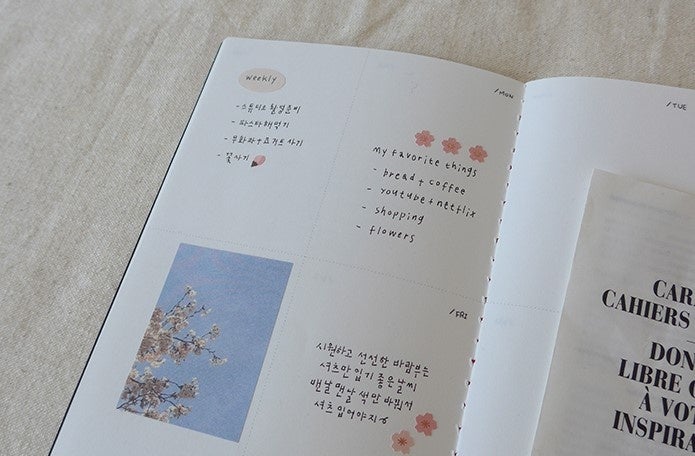 weekly
- 스튜디오 촬영준비
- 파스타해먹기
- 무화과+요거트 사기
- 꽃 사기
/MON
my favorite things
- bread + coffee
- youtube + netflix
- shopping
- flowers
/FRI
시원하고 선선한 바람부는
셔츠만 입기 좋은 날씨
맨날 맨날 색만 바꿔서
셔츠 입어야지
/TUE
CAR
CAHIERS
DON
LIBRE
À VO
INSPIRA